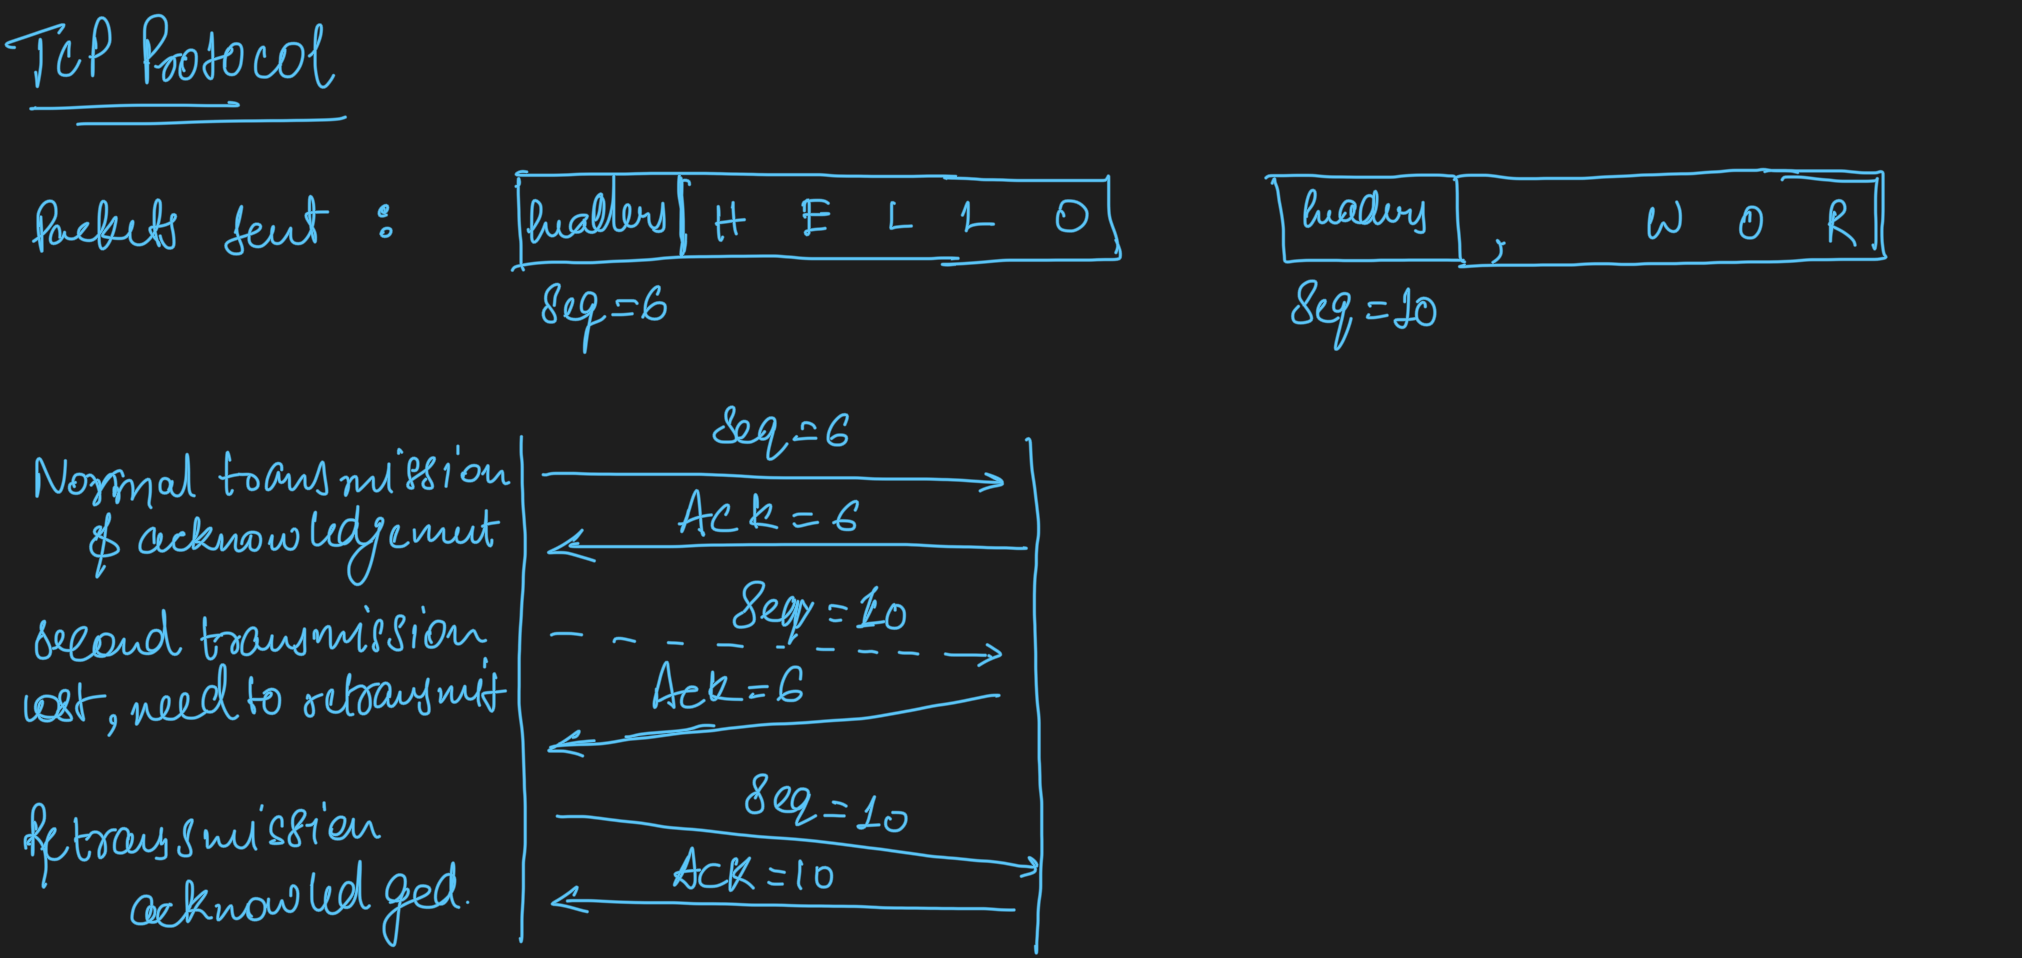 TCP Protocol
Packets sent : headers H E L L O headers , W O R
Seq=6 Seq=10
Seq=6
Normal transmission
& acknowledgement
Ack=6
Seq=10
second transmission
lost, need to retransmit
Ack=6
Seq=10
Retransmission
acknowledged.
Ack=10